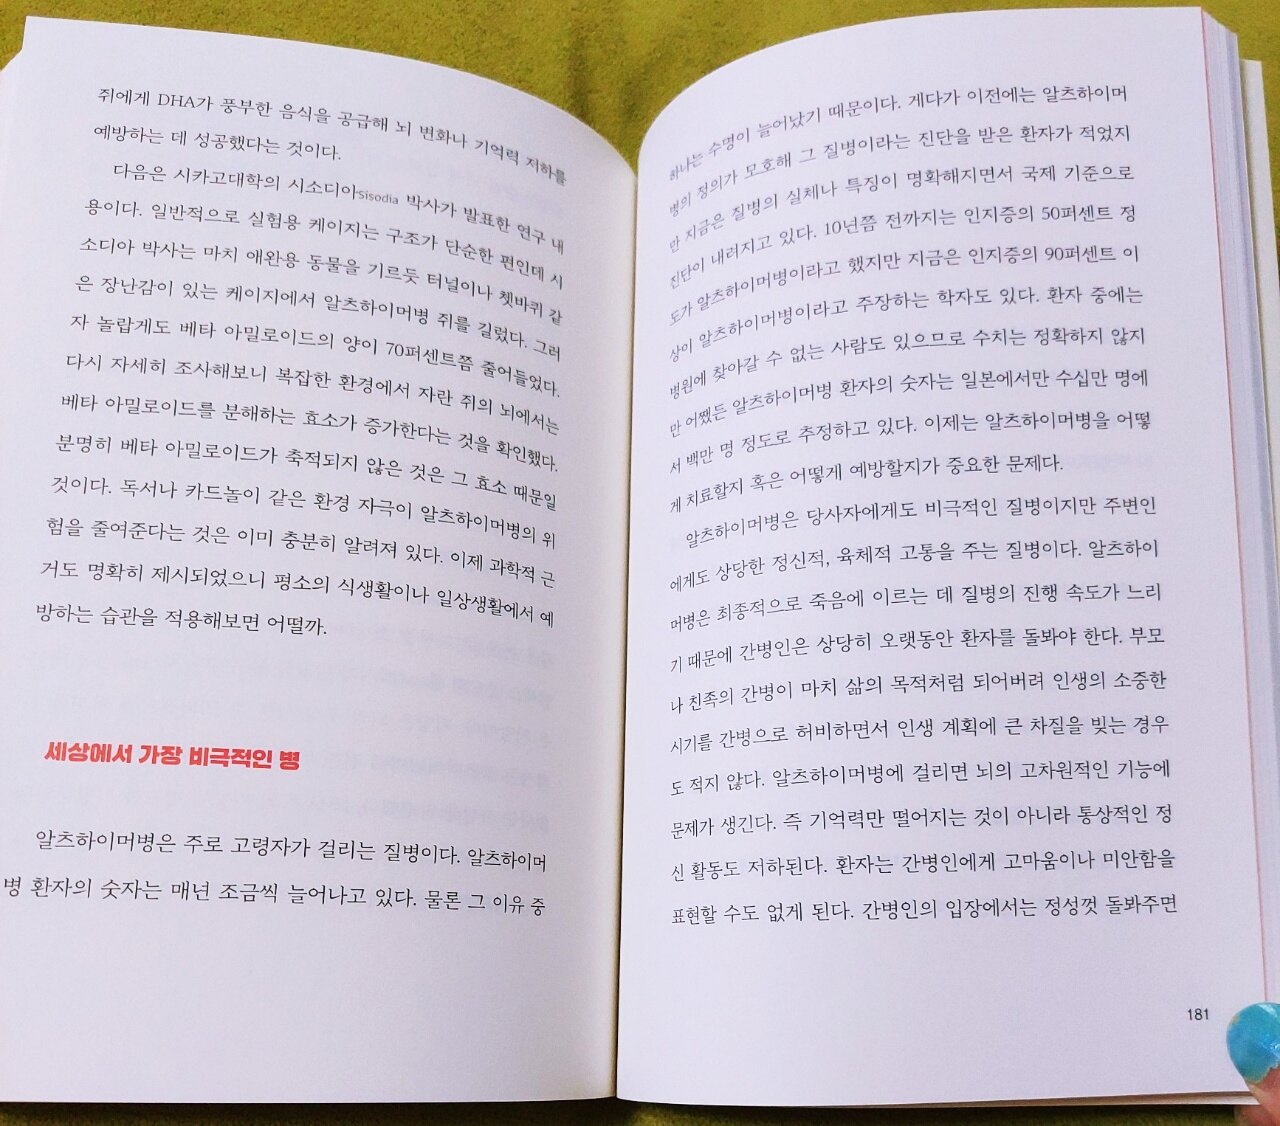 쥐에게 DHA가 풍부한 음식을 공급해 뇌 변화나 기억력 저하를
예방하는 데 성공했다는 것이다.
다음은 시카고대학의 시소디아sisodia 박사가 발표한 연구 내
용이다. 일반적으로 실험용 케이지는 구조가 단순한 편인데 시
소디아 박사는 마치 애완용 동물을 기르듯 터널이나 쳇바퀴 같
은 장난감이 있는 케이지에서 알츠하이머병 쥐를 길렀다. 그러
자 놀랍게도 베타 아밀로이드의 양이 70퍼센트쯤 줄어들었다.
다시 자세히 조사해보니 복잡한 환경에서 자란 쥐의 뇌에서는
베타 아밀로이드를 분해하는 효소가 증가한다는 것을 확인했다.
분명히 베타 아밀로이드가 축적되지 않은 것은 그 효소 때문일
것이다. 독서나 카드놀이 같은 환경 자극이 알츠하이머병의 위
험을 줄여준다는 것은 이미 충분히 알려져 있다. 이제 과학적 근
거도 명확히 제시되었으니 평소의 식생활이나 일상생활에서 예
방하는 습관을 적용해보면 어떨까.
세상에서 가장 비극적인 병
알츠하이머병은 주로 고령자가 걸리는 질병이다. 알츠하이머
병 환자의 숫자는 매년 조금씩 늘어나고 있다. 물론 그 이유 중
하나는 수명이 늘어났기 때문이다. 게다가 이전에는 알츠하이머
병의 정의가 모호해 그 질병이라는 진단을 받은 환자가 적었지
만 지금은 질병의 실체나 특징이 명확해지면서 국제 기준으로
진단이 내려지고 있다. 10년쯤 전까지는 인지증의 50퍼센트 정
도가 알츠하이머병이라고 했지만 지금은 인지증의 90퍼센트 이
상이 알츠하이머병이라고 주장하는 학자도 있다. 환자 중에는
병원에 찾아갈 수 없는 사람도 있으므로 수치는 정확하지 않지
만 어쨌든 알츠하이머병 환자의 숫자는 일본에서만 수십만 명에
서 백만 명 정도로 추정하고 있다. 이제는 알츠하이머병을 어떻
게 치료할지 혹은 어떻게 예방할지가 중요한 문제다.
알츠하이머병은 당사자에게도 비극적인 질병이지만 주변인
에게도 상당한 정신적, 육체적 고통을 주는 질병이다. 알츠하이
머병은 최종적으로 죽음에 이르는 데 질병의 진행 속도가 느리
기 때문에 간병인은 상당히 오랫동안 환자를 돌봐야 한다. 부모
나 친족의 간병이 마치 삶의 목적처럼 되어버려 인생의 소중한
시기를 간병으로 허비하면서 인생 계획에 큰 차질을 빚는 경우
도 적지 않다. 알츠하이머병에 걸리면 뇌의 고차원적인 기능에
문제가 생긴다. 즉 기억력만 떨어지는 것이 아니라 통상적인 정
신 활동도 저하된다. 환자는 간병인에게 고마움이나 미안함을
표현할 수도 없게 된다. 간병인의 입장에서는 정성껏 돌봐주면
181